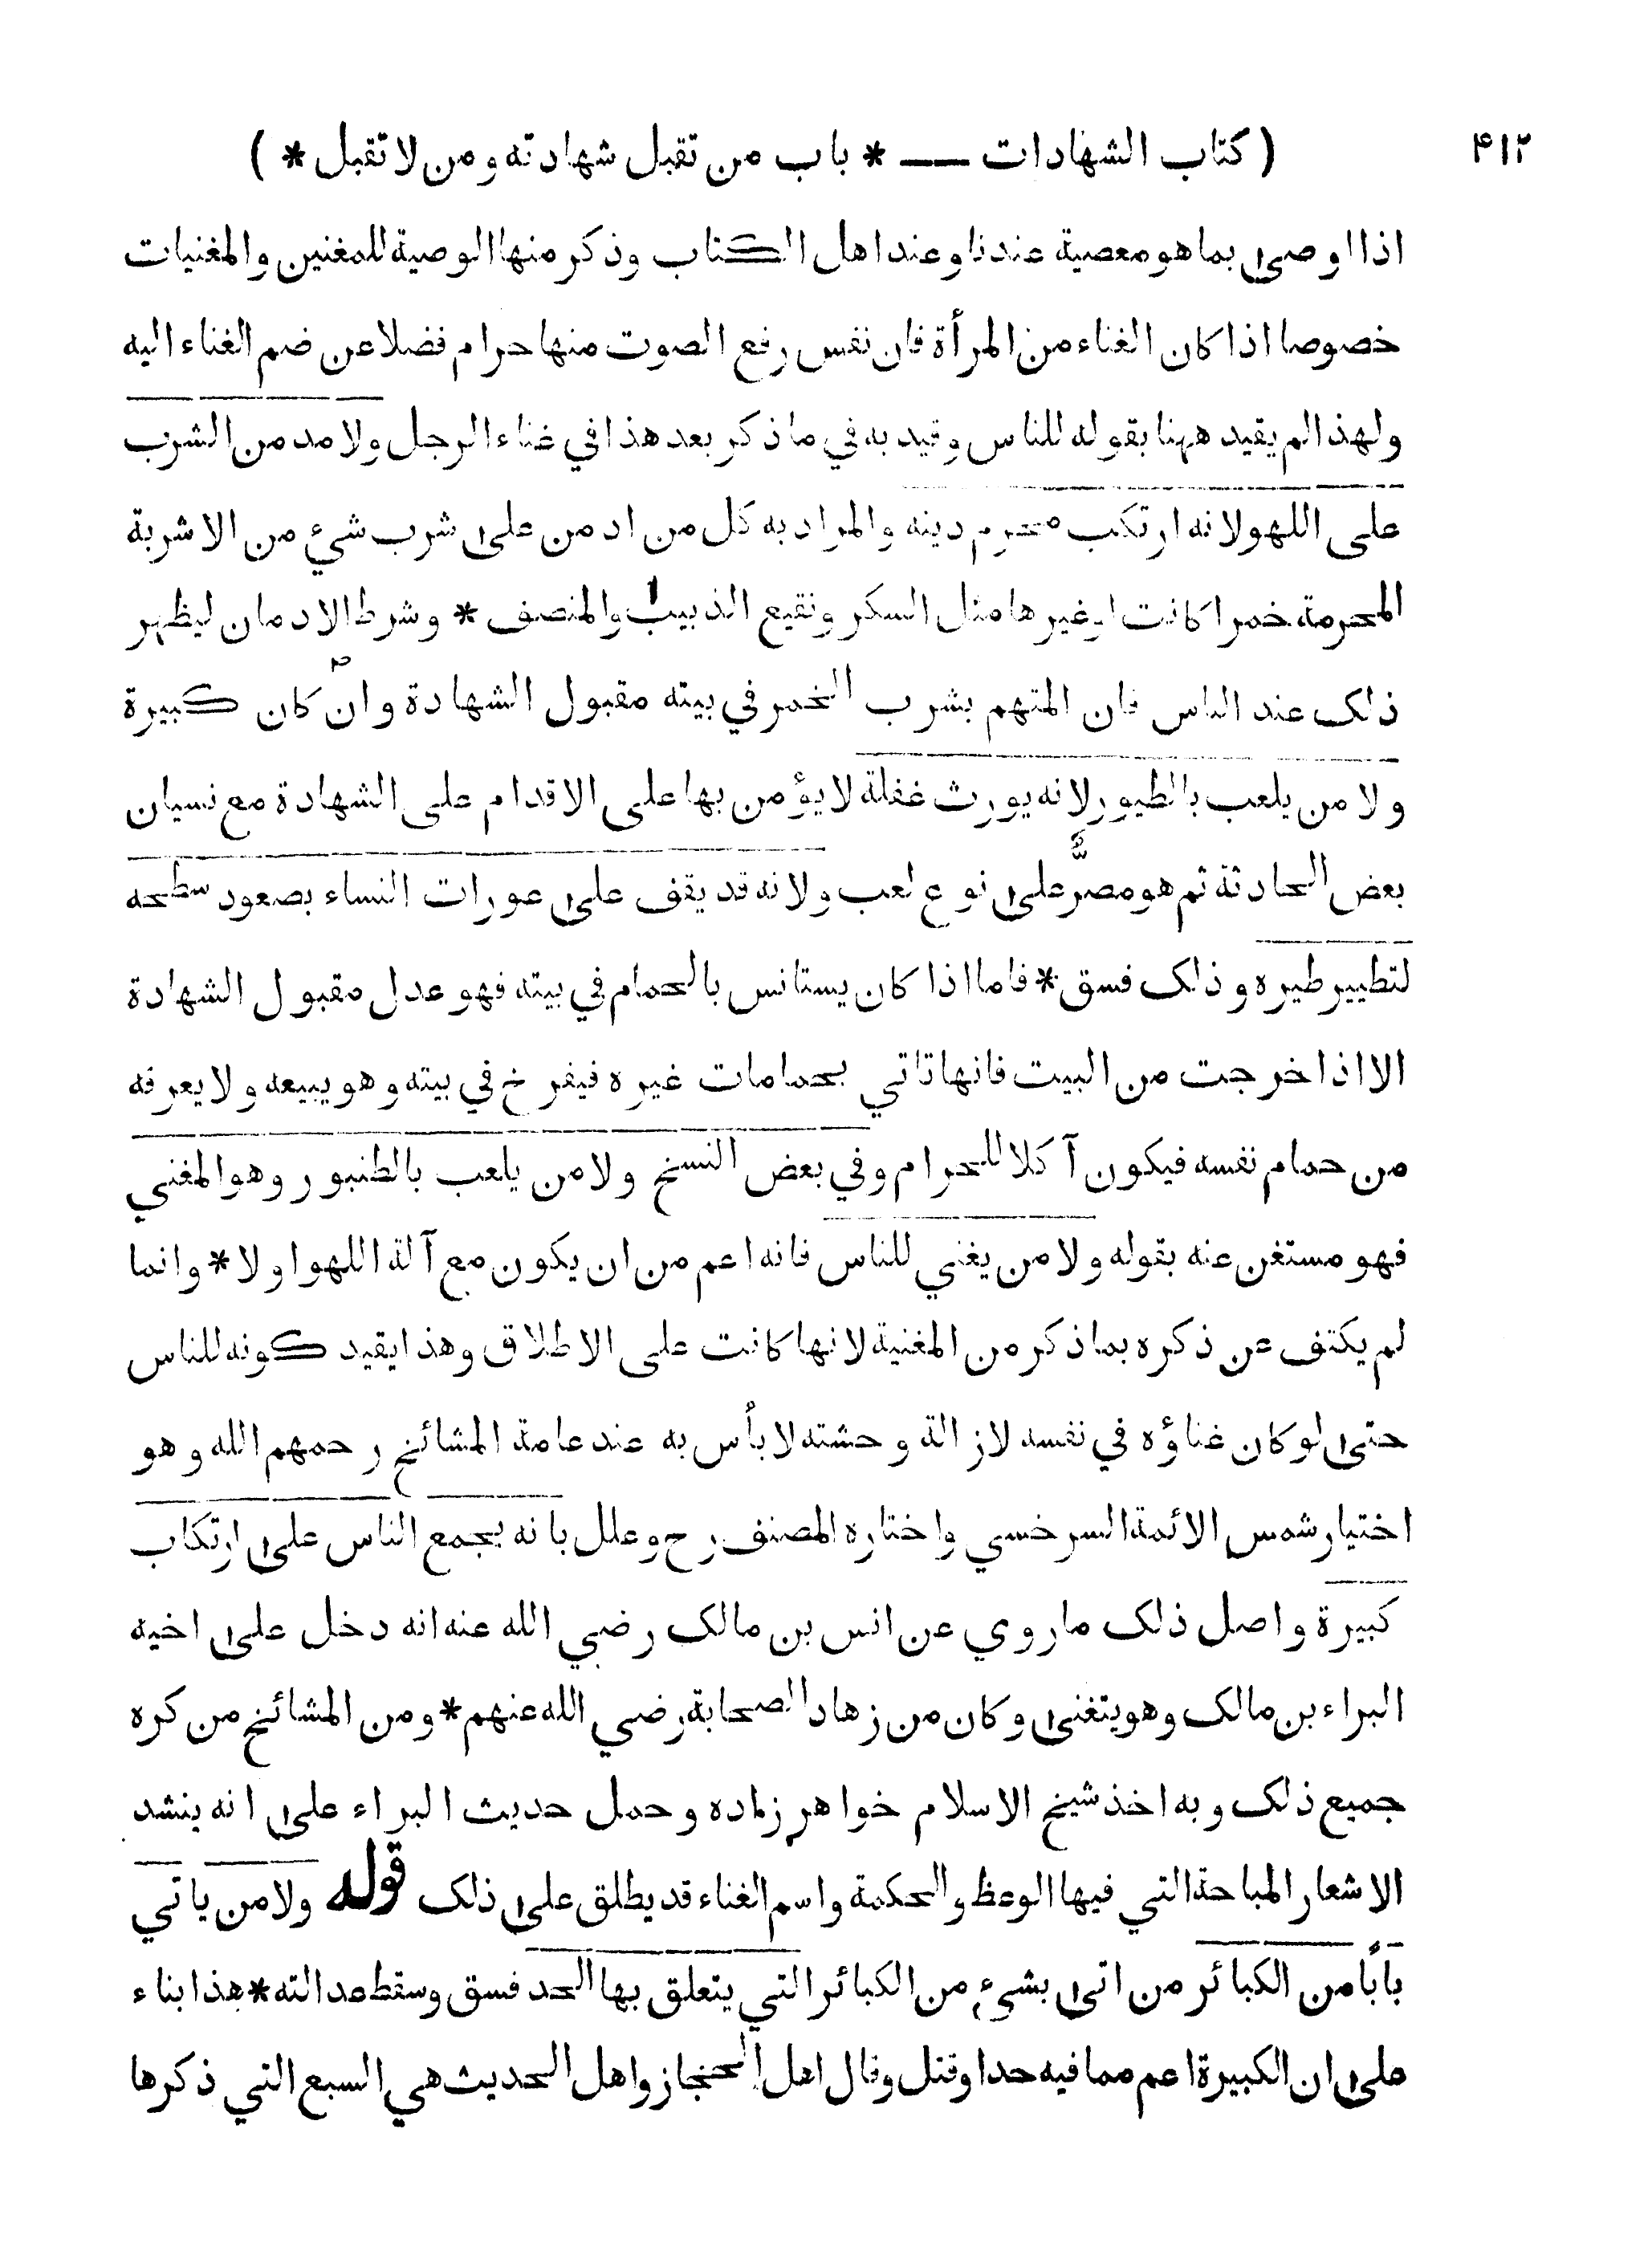 ۴۱۲ ( كتاب الشهادات — * باب من تقبل شهادته ومن لا تقبل * )
اذا اوصى بما هو معصية عندنا وعند اهل الكتاب وذكر منها الوصية للمغنين والمغنيات
خصوصا اذا كان الغناء من المرأة فان نفس رفع الصوت منها حرام فضلا عن ضم الغناء اليه
ولهذا لم يقيد ههنا بقوله للناس وقيد به في ما ذكر بعد هذا في غناء الرجل ولا مدمن الشرب
على اللهو لانه ارتكب محرم دينه والمراد به كل من ادمن على شرب شيء من الاشربة
المحرمة خمرا كانت او غيرها مثل السكر ونقيع الذبيب والمنصف * وشرط الادمان ليظهر
ذلك عند الناس فان المتهم بشرب الخمر في بيته مقبول الشهادة وان كان كبيرة
ولا من يلعب بالطيور لانه يورث غفلة لا يؤمن بها على الاقدام على الشهادة مع نسيان
بعض الحادثة ثم هو مصرٌّ على نوع لعب ولانه قد يقف على عورات النساء بصعود سطحه
لتطيير طيره وذلك فسق * فاما اذا كان يستانس بالحمام في بيته فهو عدل مقبول الشهادة
الا اذا خرجت من البيت فانها تاتي بحمامات غيره فيفرخ في بيته وهو يبيعه ولا يعرفه
من حمام نفسه فيكون آكلا للحرام وفي بعض النسخ ولا من يلعب بالطنبور وهو المغني
فهو مستغن عنه بقوله ولا من يغني للناس فانه اعم من ان يكون مع آلة اللهو اولا * وانما
لم يكتف عن ذكره بما ذكر من المغنية لانها كانت على الاطلاق وهذا يقيد كونه للناس
حتى لو كان غناؤه في نفسه لازالة وحشته لا بأس به عند عامة المشائخ رحمهم الله وهو
اختيار شمس الائمة السرخسي واختاره المصنف رح وعلل بانه يجمع الناس على ارتكاب
كبيرة واصل ذلك ما روي عن انس بن مالك رضي الله عنه انه دخل على اخيه
البراء بن مالك وهو يتغنى وكان من زهاد الصحابة رضي الله عنهم * ومن المشائخ من كره
جميع ذلك وبه اخذ شيخ الاسلام خواهر زاده وحمل حديث البراء على انه ينشد
الاشعار المباحة التي فيها الوعظ والحكمة واسم الغناء قد يطلق على ذلك قوله ولا من ياتي
باباً من الكبائر من اتى بشيء من الكبائر التي يتعلق بها الحد فسق وسقط عدالته * هذا بناء
على ان الكبيرة اعم مما فيه حد او قتل وقال اهل الحجاز واهل الحديث هي السبع التي ذكرها